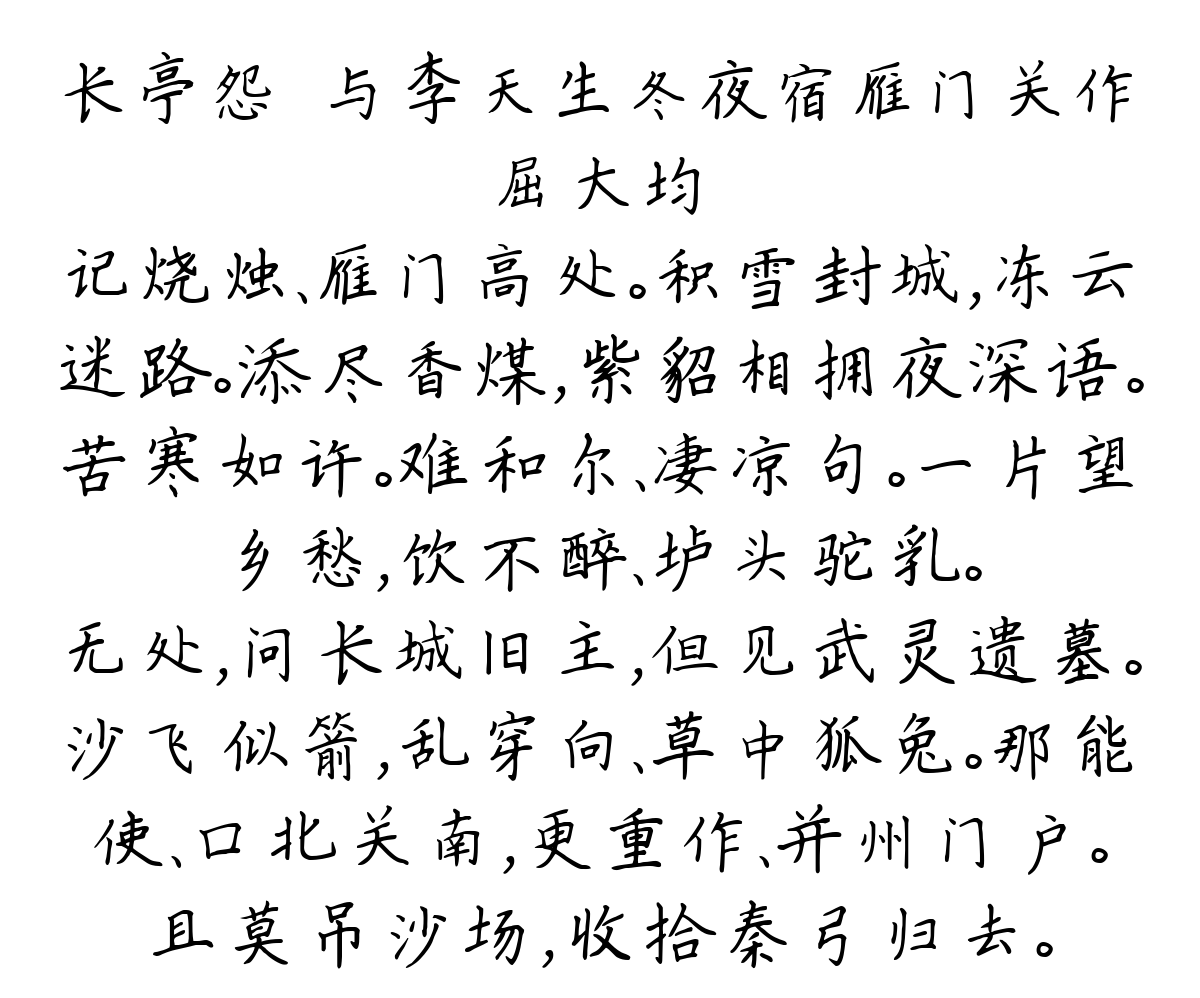 长亭怨 与李天生冬夜宿雁门关作
屈大均
记烧烛、雁门高处。积雪封城,冻云
迷路。添尽香煤,紫貂相拥夜深语。
苦寒如许。难和尔、凄凉句。一片望
乡愁,饮不醉、垆头驼乳。
无处,问长城旧主,但见武灵遗墓。
沙飞似箭,乱穿向、草中狐兔。那能
使、口北关南,更重作、并州门户。
且莫吊沙场,收拾秦弓归去。